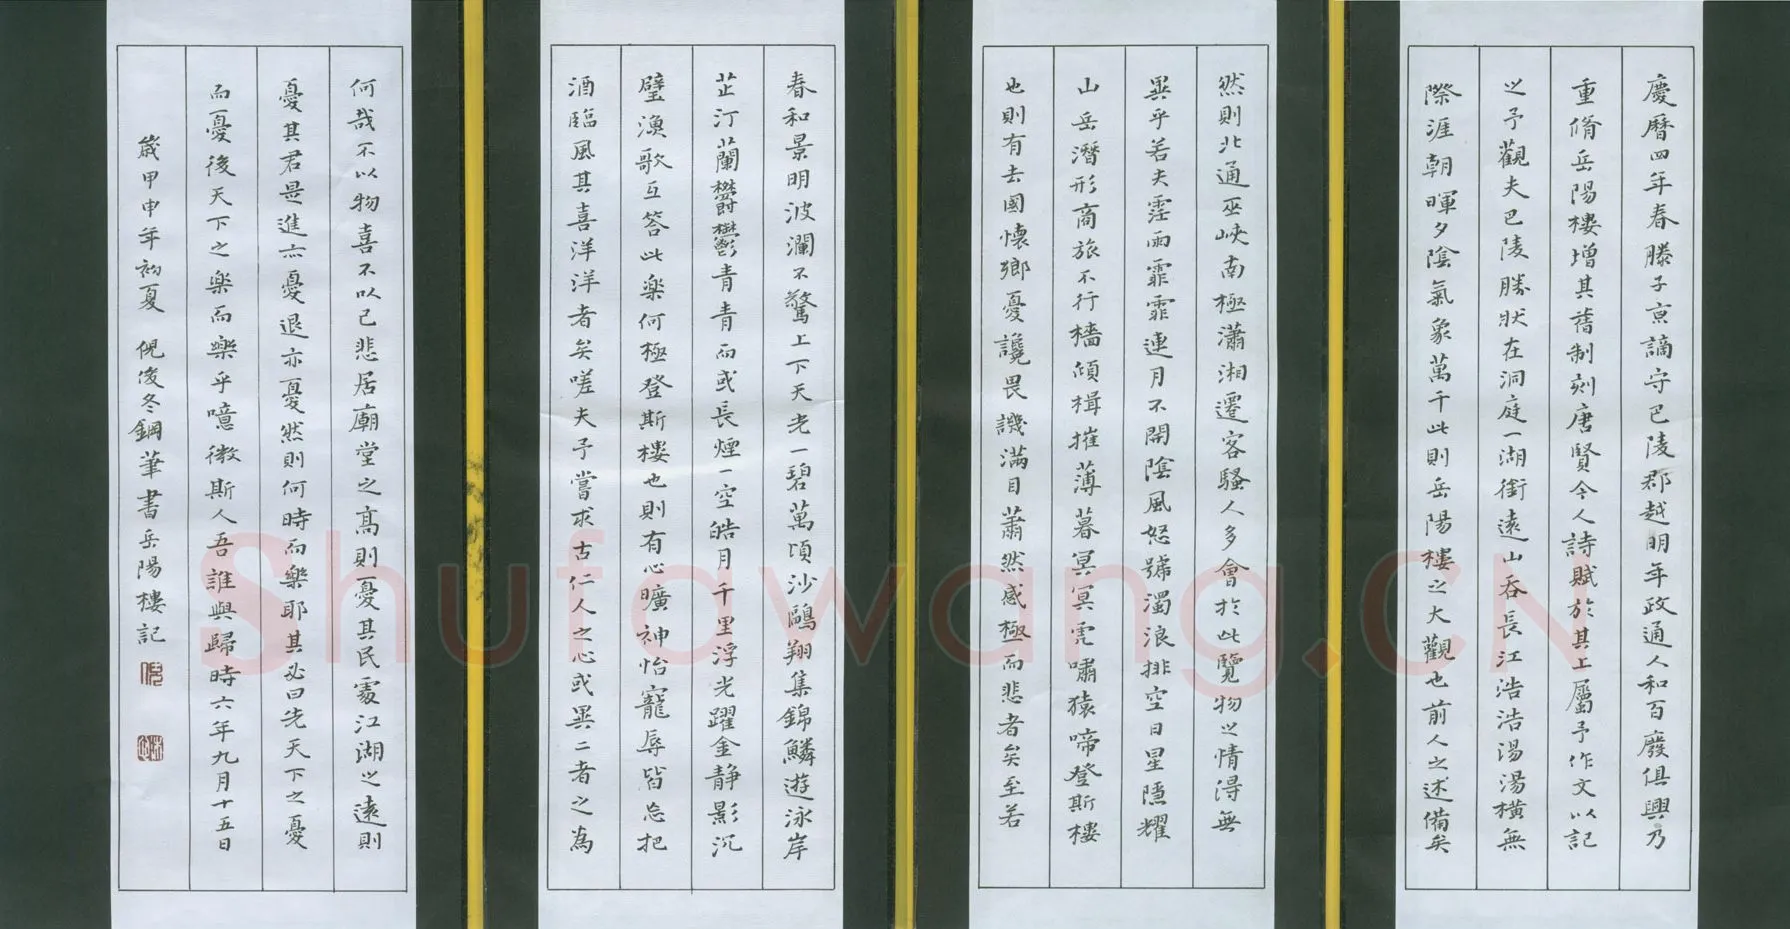 慶曆四年春滕子京謫守巴陵郡越明年政通人和百廢俱興乃
重脩岳陽樓增其舊制刻唐賢今人詩賦於其上屬予作文以記
之予觀夫巴陵勝狀在洞庭一湖銜遠山吞長江浩浩湯湯橫無
際涯朝暉夕陰氣象萬千此則岳陽樓之大觀也前人之述備矣
然則北通巫峽南極瀟湘遷客騷人多會於此覽物之情得無
異乎若夫霪雨霏霏連月不開陰風怒號濁浪排空日星隱耀
山岳潛形商旅不行檣傾楫摧薄暮冥冥虎嘯猿啼登斯樓
也則有去國懷鄉憂讒畏譏滿目蕭然感極而悲者矣至若
春和景明波瀾不驚上下天光一碧萬頃沙鷗翔集錦鱗遊泳岸
芷汀蘭鬱鬱青青而或長煙一空皓月千里浮光躍金靜影沉
璧漁歌互答此楽何極登斯樓也則有心曠神怡寵辱皆忘把
酒臨風其喜洋洋者矣嗟夫予嘗求古仁人之心或異二者之為
何哉不以物喜不以己悲居廟堂之高則憂其民處江湖之遠則
憂其君是進亦憂退亦憂然則何時而樂耶其必曰先天下之憂
而憂後天下之楽而樂乎噫微斯人吾誰與歸時六年九月十五日
歲甲申年初夏 倪俊冬鋼筆書岳陽樓記
Shufawang.CN